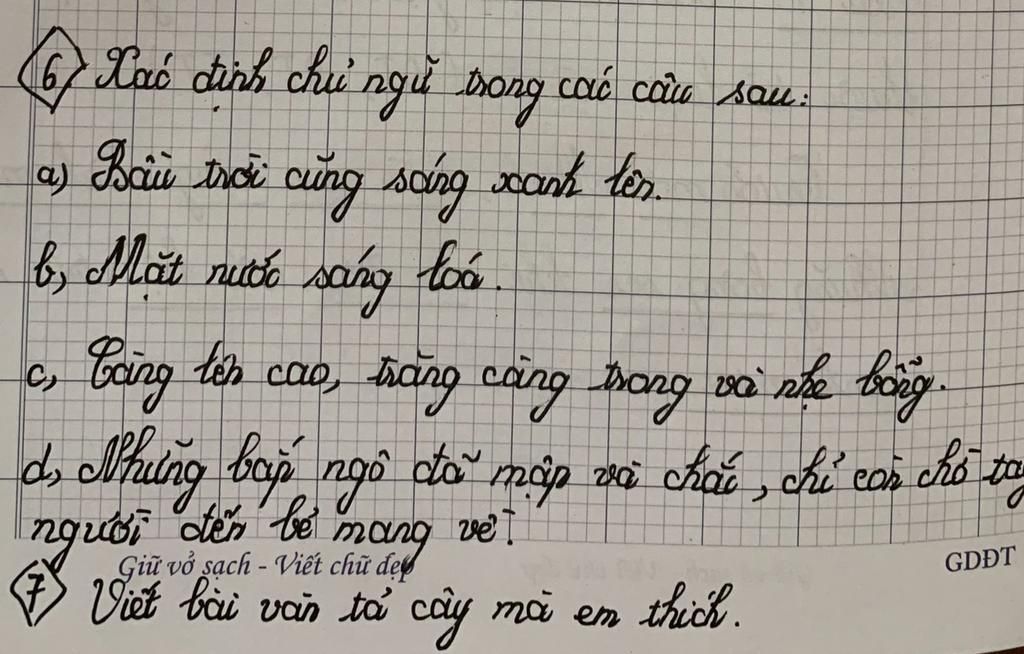 6 Xác định chủ ngữ trong các câu sau:
a) Bầu trời cũng sáng xanh lên.
b, Mặt nước sáng loá.
c, Càng lên cao, trăng càng trong và nhẹ bỗng.
d, Những bắp ngô đã mập và chắc, chỉ còn chờ tay
người đến bẻ mang về.
Giữ vở sạch - Viết chữ đẹp
GDĐT
7 Viết bài văn tả cây mà em thích.